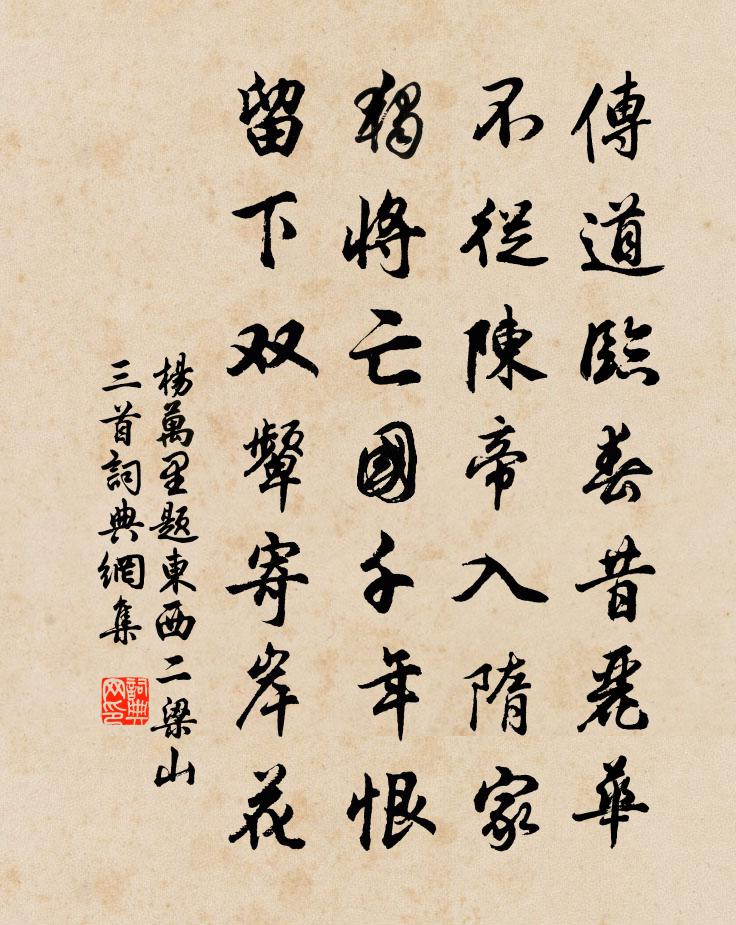 傳道臨春昔麗華
不從陳帝入隋家
獨將亡國千年恨
留下双顰寄岸花
楊萬里題東西二梁山
三首詞典網集
詞典
网印